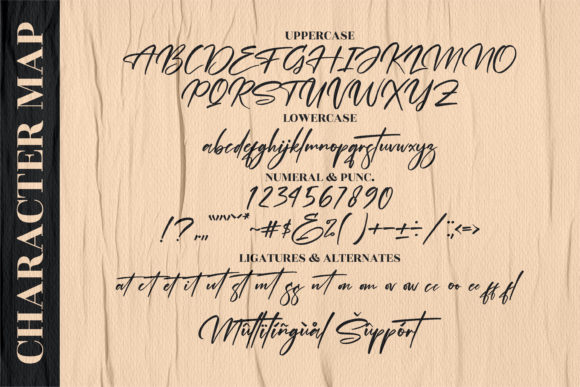 CHARACTER MAP
UPPERCASE
ABCDEFGHIJKLMNO
PQRSTUVWXYZ
LOWERCASE
abcdefghijklmnopqrstuvwxyz
NUMERAL & PUNC.
1234567890
~#$&%()+-±÷/:;<=>
LIGATURES & ALTERNATES
at ct et it ut st mt ss nt on an ar aw cc oo ee ff fl